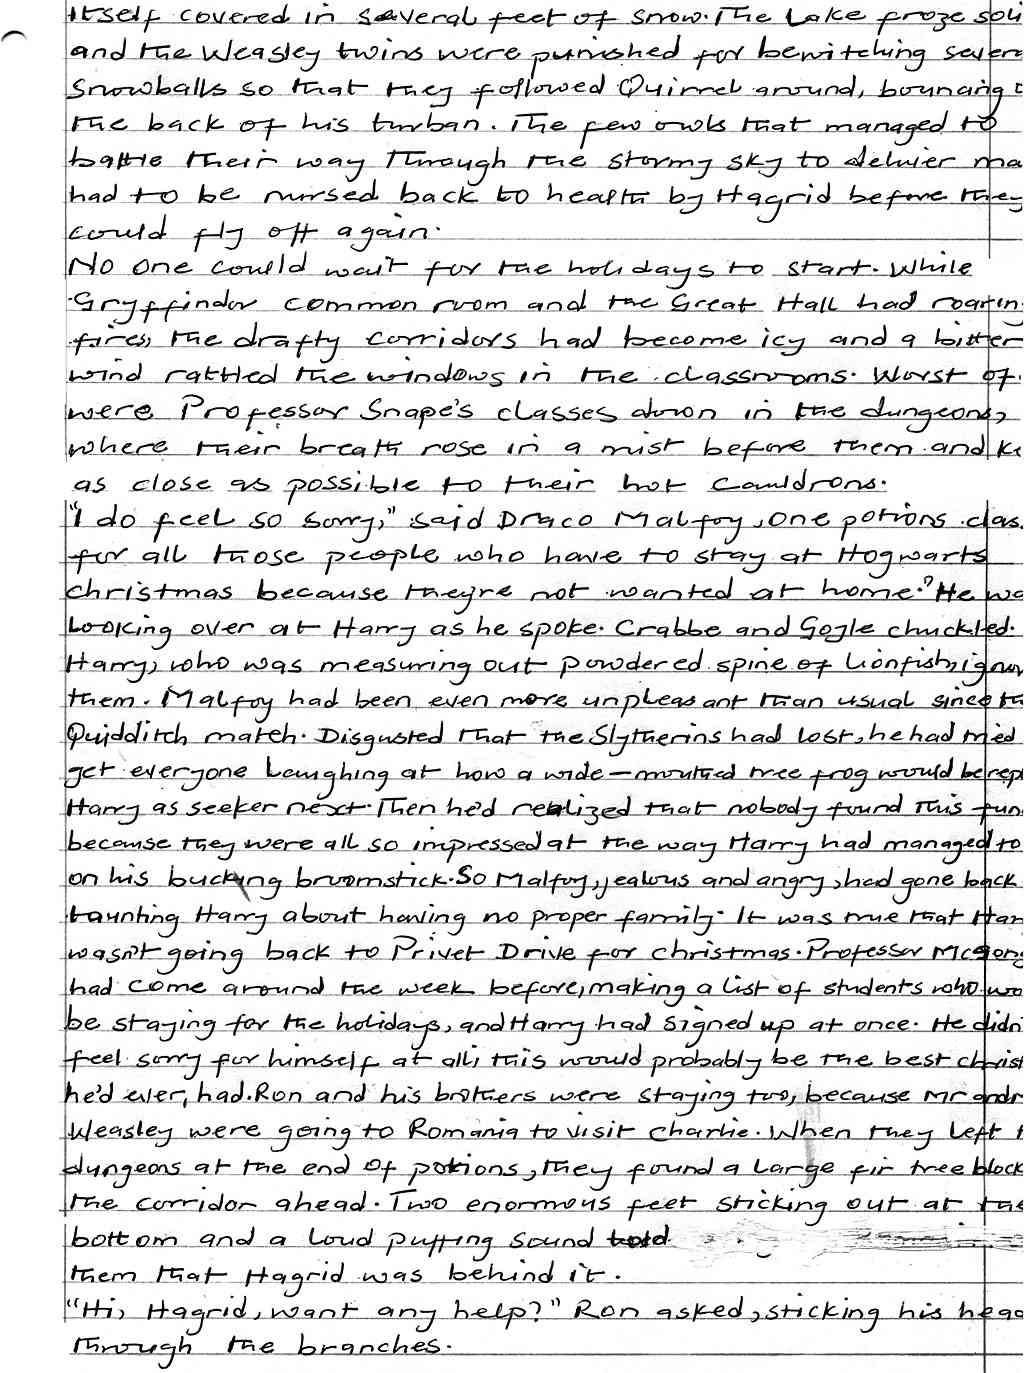 itself covered in several feet of snow. The Lake froze soli
and the Weasley twins were punished for bewitching sever
Snowballs so that they followed Quirrel around, bouncing
the back of his turban. The few owls that managed to
battle their way Through the stormy sky to deliver ma
had to be nursed back to health by Hagrid before they
could fly off again.
No one could wait for the holidays to start. While
Gryffindor common room and the Great Hall had roarin
fires, the drafty corridors had become icy and a bitter
wind rattled the windows in the classrooms. Worst of
were Professor Snape's classes down in the dungeons,
where their breath rose in a mist before them and ke
as close as possible to their hot cauldrons.
"I do feel so sorry," said Draco Malfoy, one potions clas
for all those people who have to stay at Hogwarts
christmas because they're not wanted at home." He wa
Looking over at Harry as he spoke. Crabbe and Gogle chuckled.
Harry, who was measuring out powdered spine of lionfish, ignor
them. Malfoy had been even more unpleasant than usual since th
Quidditch match. Disgusted that the Slytherins had lost, he had tried
get everyone Laughing at how a wide-mouthed tree frog would be repl
Harry as seeker next. Then he'd realized that nobody found this fun
because they were all so impressed at the way Harry had managed to
on his bucking broomstick. So Malfoy, jealous and angry, had gone back
taunting Harry about having no proper family. It was true that Har
wasn't going back to Privet Drive for christmas. Professor McGong
had come around the week before, making a list of students who wo
be staying for the holidays, and Harry had signed up at once. He didn
feel sorry for himself at all; this would probably be the best christ
he'd ever, had. Ron and his brothers were staying too, because Mr andr
Weasley were going to Romania to visit charlie. When they left t
dungeons at the end of potions, they found a large fir tree block
the corridor ahead. Two enormous feet sticking out at the
bottom and a loud puffing sound told
them that Hagrid was behind it.
"Hi, Hagrid, want any help?" Ron asked, sticking his head
through the branches.